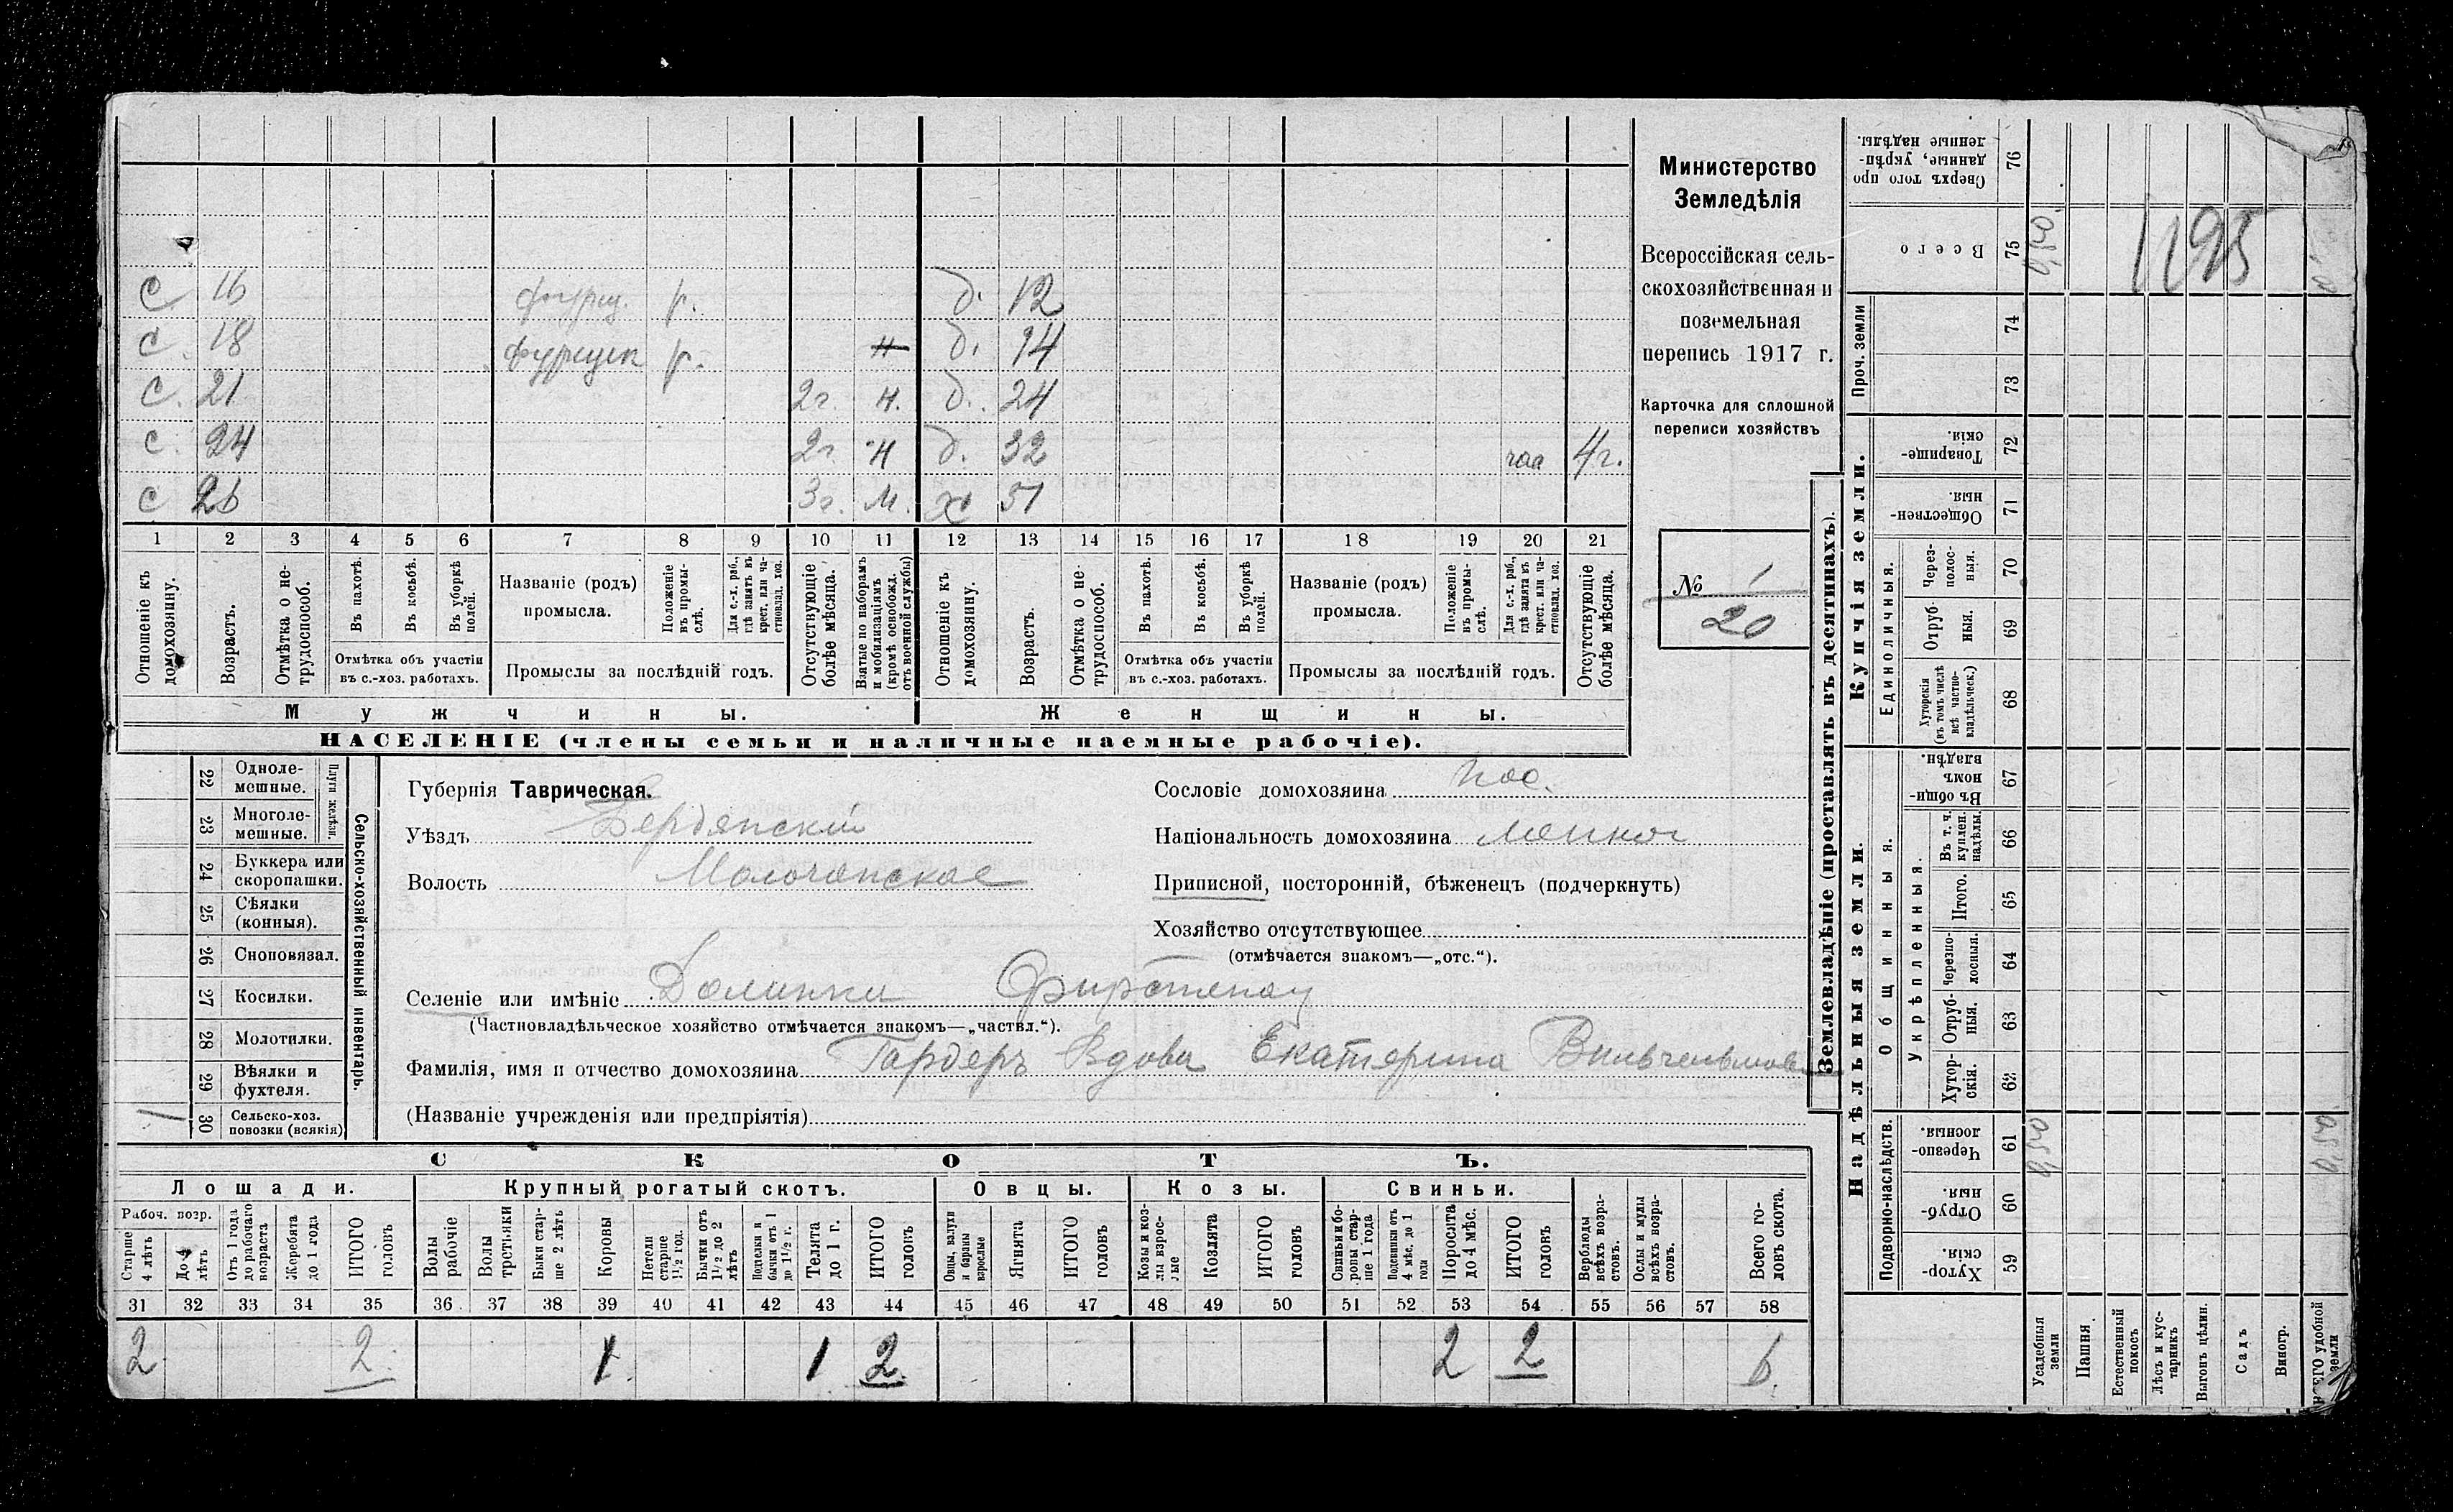 с 16 фурщ. р. д. 12
с. 18 фурщик р. н д. 14
с. 21 2г. н. д. 24
с. 24 2г н д. 32 4г.
с 26 3г. м. х 51
1 2 3 4 5 6 7 8 9 10 11 12 13 14 15 16 17 18 19 20 21
Отношеніе къ домохозяину.
Возрастъ.
Отмѣтка о нетрудоспособ.
Въ пахотѣ.
Въ косьбѣ.
Въ уборкѣ полей.
Отмѣтка объ участіи въ с.-хоз. работахъ.
Названіе (родъ) промысла.
Положеніе въ промыслѣ.
Для с.-х. раб., гдѣ занятъ въ крест. или частновлад. хоз.
Промыслы за послѣдній годъ.
Отсутствующіе болѣе мѣсяца.
Взятые по наборамъ и мобилизаціямъ (кромѣ освобожд. отъ военной службы)
Отношеніе къ домохозяину.
Возрастъ.
Отмѣтка о нетрудоспособ.
Въ пахотѣ.
Въ косьбѣ.
Въ уборкѣ полей.
Отмѣтка объ участіи въ с.-хоз. работахъ.
Названіе (родъ) промысла.
Положеніе въ промыслѣ.
Для с.-х. раб., гдѣ занята въ крест. или частновлад. хоз.
Промыслы за послѣдній годъ.
Отсутствующіе болѣе мѣсяца.
Мужчины. Женщины.
НАСЕЛЕНІЕ (члены семьи и наличные наемные рабочіе).
Министерство
Земледѣлія
Всероссійская сель-
скохозяйственная и
поземельная
перепись 1917 г.
Карточка для сплошной
переписи хозяйствъ
№ 1
20
22 Одноле-мешные.
23 Многоле-мешные.
Плуги желѣзн.
24 Буккера или скоропашки.
25 Сѣялки (конныя).
26 Сноповязал.
27 Косилки.
28 Молотилки.
29 Вѣялки и фухтеля.
30 Сельско-хоз. повозки (всякія) 1
Сельско-хозяйственный инвентарь.
Губернія Таврическая.
Уѣздъ Бердянскій
Волость Молочанское
Сословіе домохозяина пос.
Національность домохозяина менног
Приписной, посторонній, бѣженецъ (подчеркнуть)
Хозяйство отсутствующее
(отмѣчается знакомъ—„отс.“).
Селеніе или имѣніе Долинка Фирстенау
(Частновладѣльческое хозяйство отмѣчается знакомъ—„частвл.“).
Фамилія, имя и отчество домохозяина Гардеръ Вдова Екатерина
(Названіе учрежденія или предпріятія)
СКОТЪ.
Лошади. Крупный рогатый скотъ. Овцы. Козы. Свиньи.
Рабоч. возр.
Старше 4 лѣтъ
До 4 лѣтъ
Отъ 1 года до рабочаго возраста
Жеребята до 1 года
ИТОГО головъ
Волы рабочіе
Волы третьяки
Быки старше 2 лѣтъ
Коровы
Нетели старше 1½ год.
Бычки отъ 1½ до 2 лѣтъ
Подтелки и бычки отъ 1 до 1½ г.
Телята до 1 г.
ИТОГО головъ
Овцы, валухи и бараны взрослые
Ягнята
ИТОГО головъ
Козы и козлы взрослые
Козлята
ИТОГО головъ
Свиньи и боровы старше 1 года
Подсвинки отъ 4 мѣс. до 1 года
Поросята до 4 мѣс.
ИТОГО головъ
Верблюды всѣхъ возрастовъ.
Ослы и мулы всѣхъ возрастовъ.
Всего головъ скота.
31 32 33 34 35 36 37 38 39 40 41 42 43 44 45 46 47 48 49 50 51 52 53 54 55 56 57 58
2 2 1 1 2 2 2 6
Землевладѣніе (проставлять въ десятинахъ).
Сверхъ того проданные, укрѣпленные надѣлы. 76
Всего 75
1195
Проч. земли 74 73
Купчія земли.
Товарищескія. 72
Общественныя. 71
Единоличныя.
Черезполосныя. 70
Отрубныя. 69
Хуторскія (въ томъ числѣ всѣ частновладѣльческ.) 68
Надѣльныя земли.
Общинныя.
Въ общинномъ владѣн. 67
Укрѣпленныя.
Въ т. ч. куплен. надѣлы. 66
Итого. 65
Черезполосныя. 64
Отрубныя. 63
Хуторскія. 62
Подворно-наслѣдств.
Черезполосныя. 61
Отрубныя. 60
Хуторскія. 59
Усадебныя земли
Пашня
Естественный покосъ
Лѣсъ и кустарникъ
Выгонъ цѣлин.
Садъ
Виногр.
удобной земли